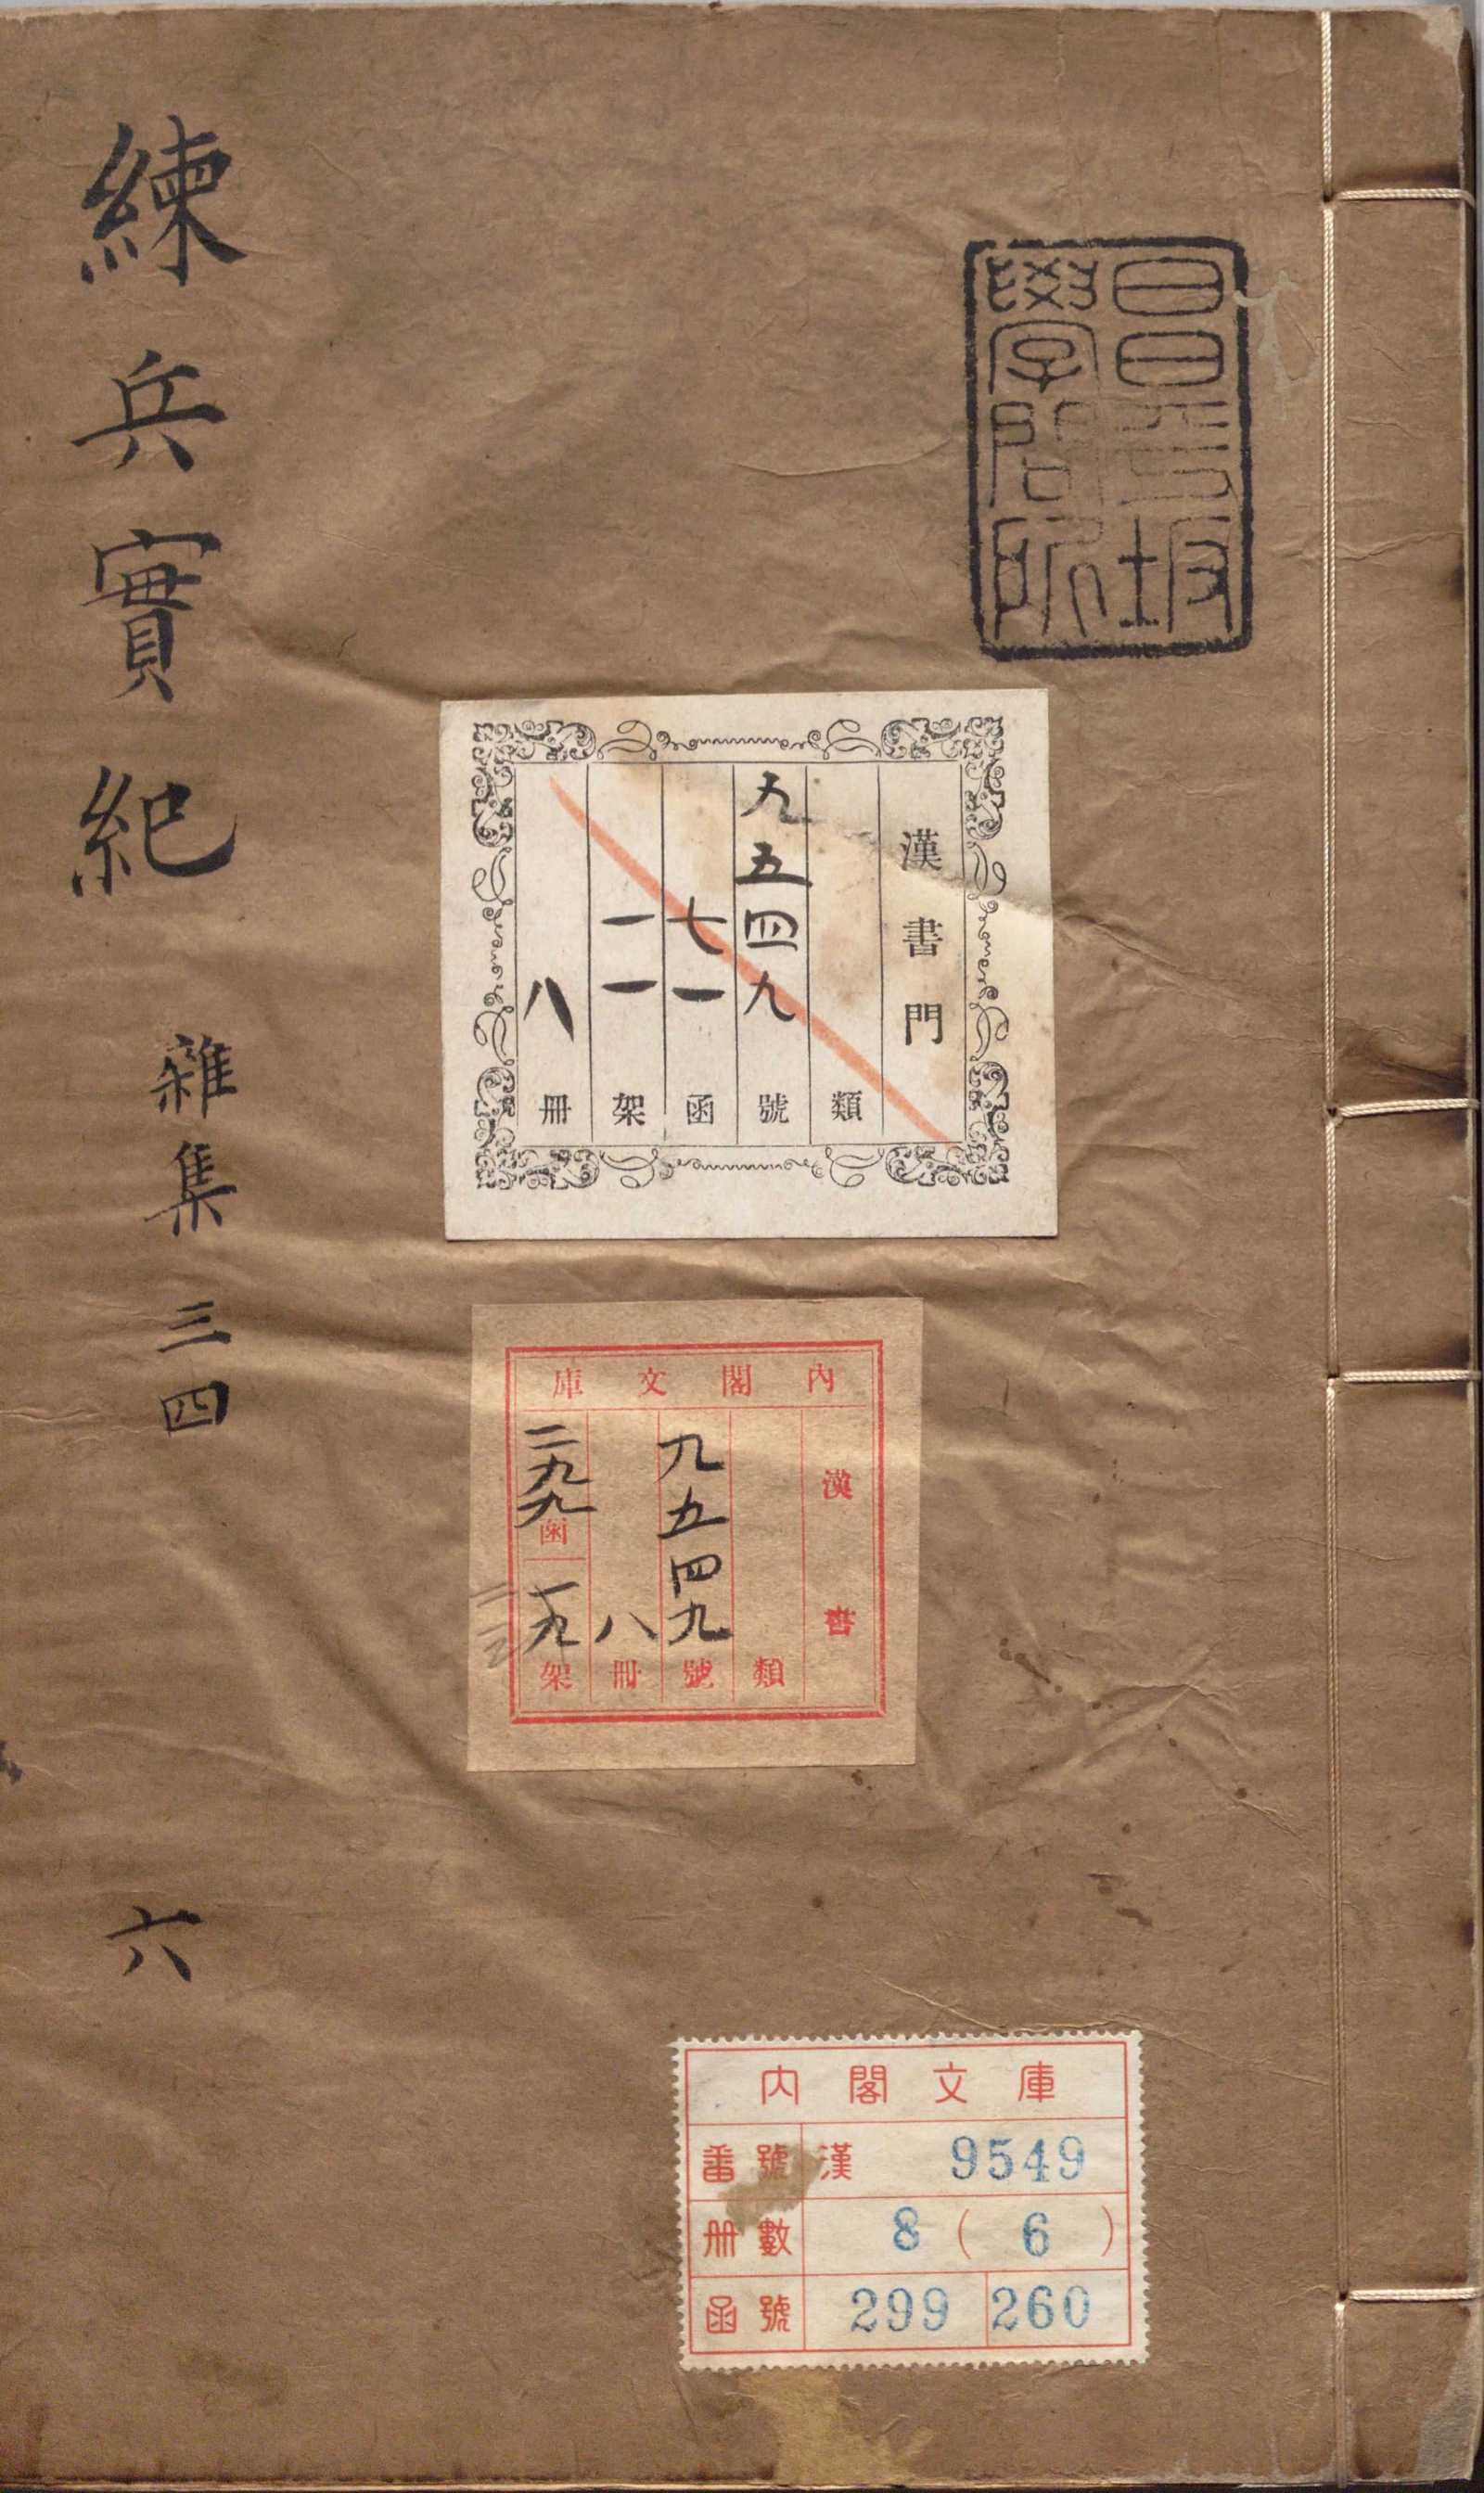 昌平坂
學問所
漢書門
類
九五四九號
七一函
一一架
八冊
內閣文庫
漢書
類
九五四九號
八冊
二九九函
一九架
練兵實紀 雜集三四 六
內閣文庫
番號 漢 9549
冊數 8(6)
函號 299 260